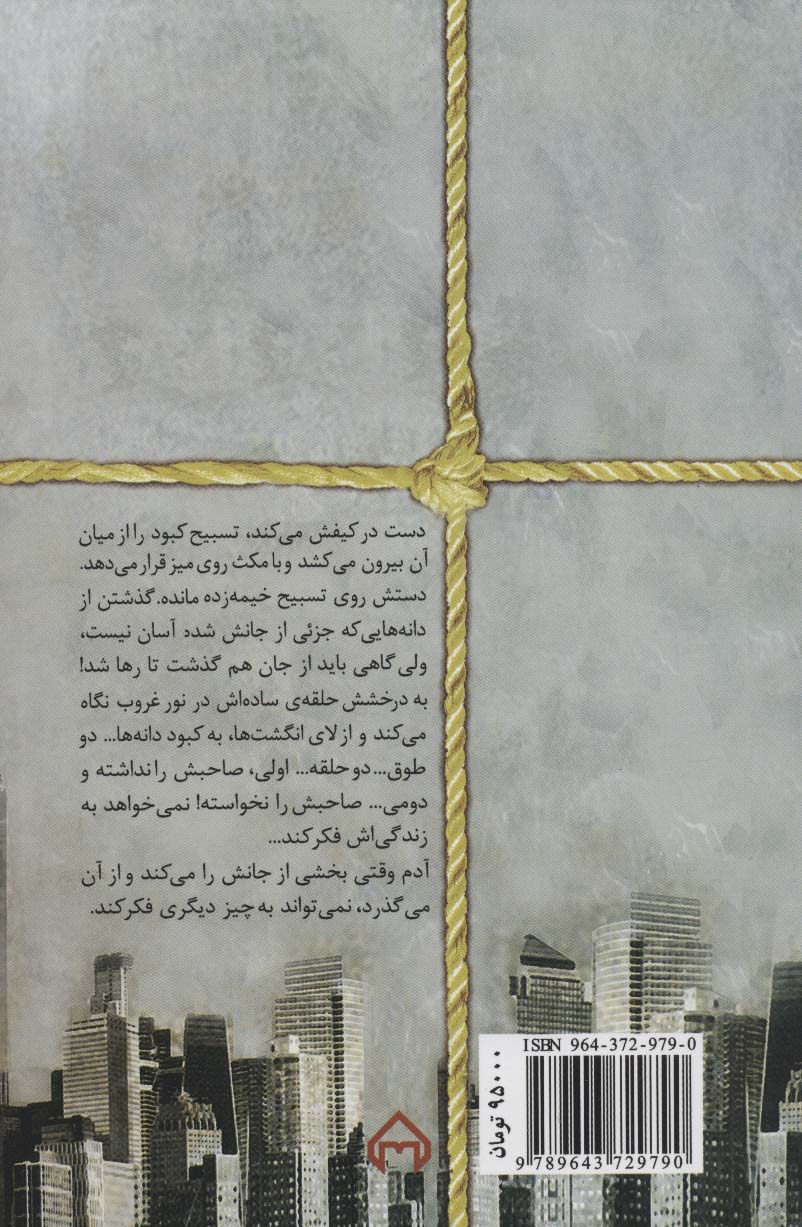 دست در کیفش می‌کند، تسبیح کبود را از میان
آن بیرون می‌کشد و با مکث روی میز قرار می‌دهد.
دستش روی تسبیح خیمه‌زده مانده. گذشتن از
دانه‌هایی‌که جزئی از جانش شده آسان نیست،
ولی گاهی باید از جان هم گذشت تا رها شد!
به درخشش حلقه‌ی ساده‌اش در نور غروب نگاه
می‌کند و از لای انگشت‌ها، به کبود دانه‌ها... دو
طوق... دو حلقه... اولی، صاحبش را نداشته و
دومی... صاحبش را نخواسته! نمی‌خواهد به
زندگی‌اش فکر کند...
آدم وقتی بخشی از جانش را می‌کند و از آن
می‌گذرد، نمی‌تواند به چیز دیگری فکر کند.
ISBN 964-372-979-0
۹۵۰۰۰ تومان
9 789643 729790